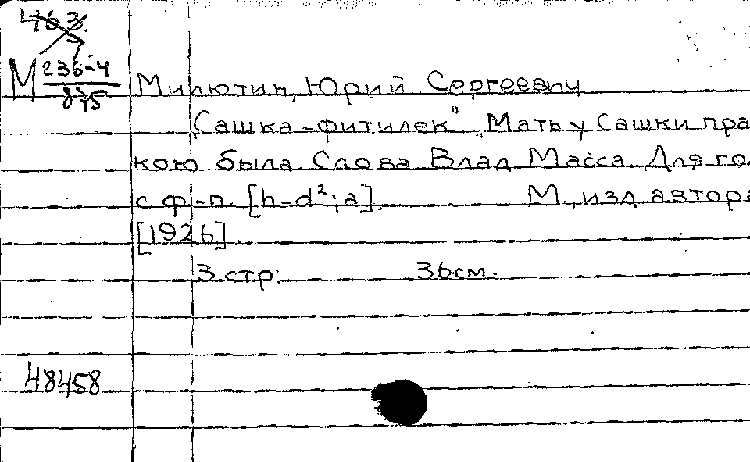 463
М 236-4
875
Милютин, Юрий Сергеевич
"Сашка-фитилек" Мать у Сашки пра
кою была Слова Влад Масса. Для гол
с ф-п. [h-d²; a] М, изд автора
[1926]
3 стр. 36см.
48458